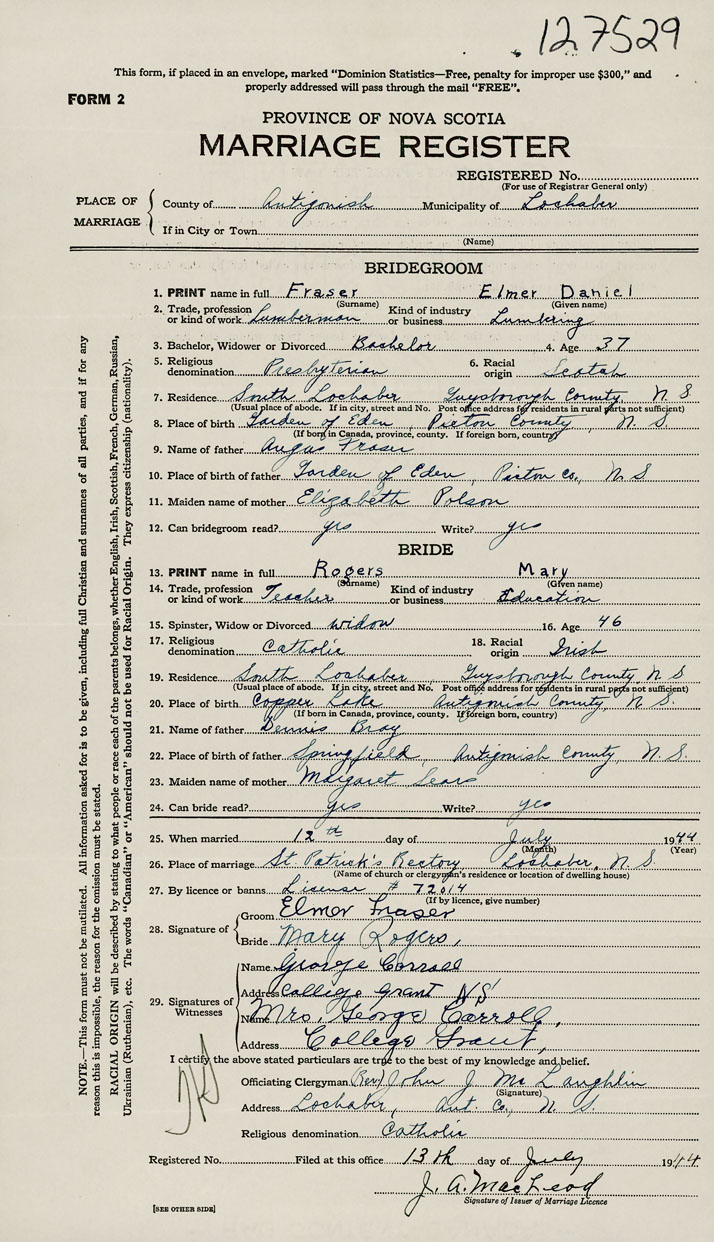 127529
This form, if placed in an envelope, marked "Dominion Statistics—Free, penalty for improper use $300," and
properly addressed will pass through the mail "FREE".
FORM 2
PROVINCE OF NOVA SCOTIA
MARRIAGE REGISTER
REGISTERED No.
(For use of Registrar General only)
PLACE OF MARRIAGE
County of Antigonish Municipality of Lochaber
If in City or Town
(Name)
BRIDEGROOM
1. PRINT name in full Fraser Elmer Daniel
(Surname) (Given name)
2. Trade, profession or kind of work Lumberman Kind of industry or business Lumbering
3. Bachelor, Widower or Divorced Bachelor 4. Age 37
5. Religious denomination Presbyterian 6. Racial origin Scotch
7. Residence South Lochaber Guysborough County, N S
(Usual place of abode. If in city, street and No. Post office address for residents in rural parts not sufficient)
8. Place of birth Garden of Eden, Pictou County, N S
(If born in Canada, province, county. If foreign born, country)
9. Name of father Angus Fraser
10. Place of birth of father Garden of Eden, Pictou Co., N S
11. Maiden name of mother Elizabeth Polson
12. Can bridegroom read? yes Write? yes
BRIDE
13. PRINT name in full Rogers Mary
(Surname) (Given name)
14. Trade, profession or kind of work Teacher Kind of industry or business Education
15. Spinster, Widow or Divorced widow 16. Age 46
17. Religious denomination Catholic 18. Racial origin Irish
19. Residence South Lochaber Guysborough County N S
(Usual place of abode. If in city, street and No. Post office address for residents in rural parts not sufficient)
20. Place of birth Copper Lake Antigonish County, N S.
(If born in Canada, province, county. If foreign born, country)
21. Name of father Dennis
22. Place of birth of father Springfield, Antigonish County, N. S.
23. Maiden name of mother Margaret Sears
24. Can bride read? yes Write? yes
25. When married 12th day of July 1944
(Month) (Year)
26. Place of marriage St. Patrick's Rectory Lochaber, N S.
(Name of church or clergyman's residence or location of dwelling house)
27. By licence or banns License # 72014
(If by licence, give number)
28. Signature of
Groom Elmer Fraser
Bride Mary Rogers,
29. Signatures of Witnesses
Name George Carroll
Address College Grant NS
Name Mrs. George Carroll,
Address College Grant,
I certify the above stated particulars are true to the best of my knowledge and belief.
Officiating Clergyman (Rev) John J. McLaughlin
(Signature)
Address Lochaber, Ant. Co., N. S.
Religious denomination Catholic
Registered No. Filed at this office 13th day of July 1944
J. A. MacLeod
Signature of Issuer of Marriage Licence
[SEE OTHER SIDE]
NOTE.—This form must not be mutilated. All information asked for is to be given, including full Christian and surnames of all parties, and if for any
reason this is impossible, the reason for the omission must be stated.
RACIAL ORIGIN will be described by stating to what people or race each of the parents belongs, whether English, Irish, Scottish, French, German, Russian,
Ukrainian (Ruthenian), etc. The words "Canadian" or "American" should not be used for Racial Origin. They express citizenship (nationality).